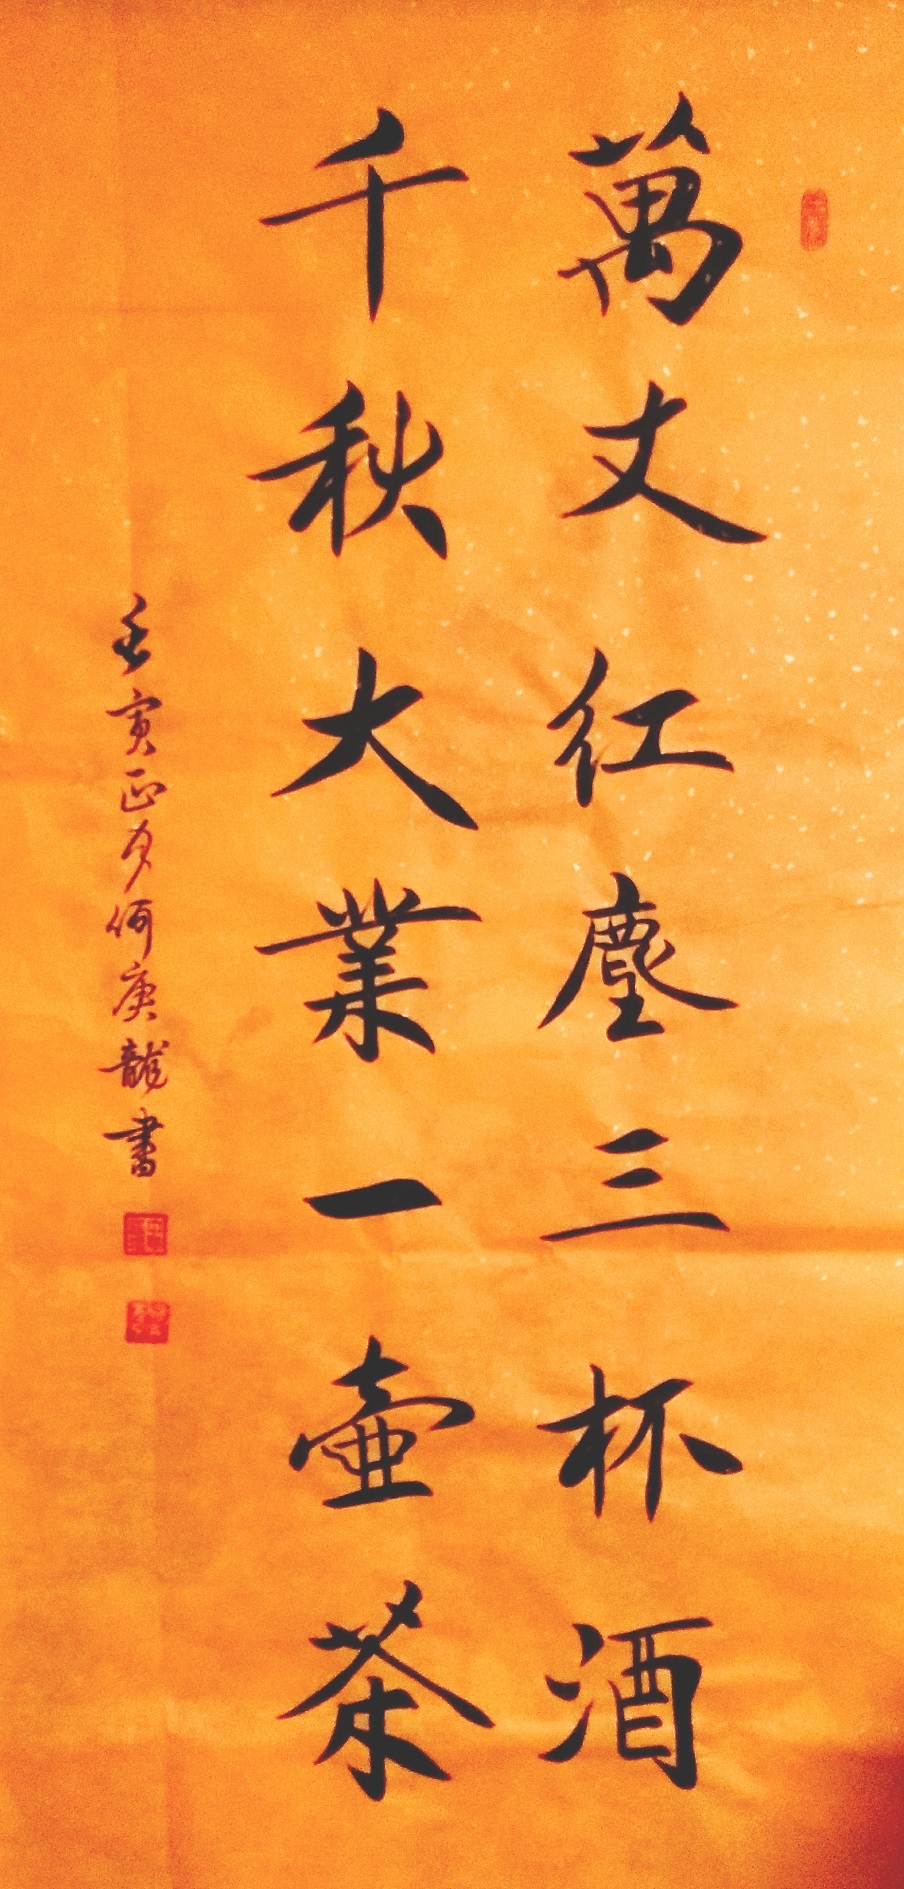 萬丈红塵三杯酒
千秋大業一壷茶
壬寅正月何庚龍書